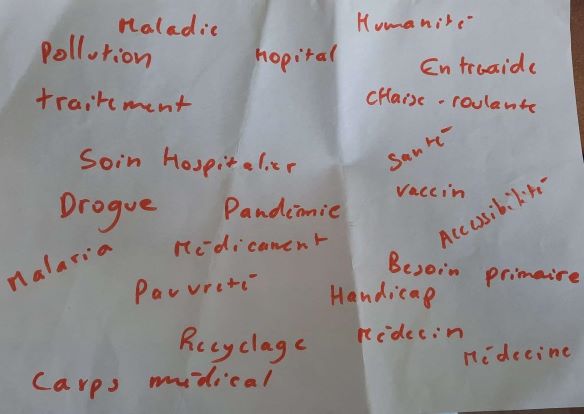 Maladie
Humanité
Pollution
Hopital
Entraide
traitement
cHaise-roulante
Soin Hospitalier
Santé
Vaccin
Drogue
Pandémie
Accessibilité
Malaria
Médicament
Besoin primaire
Pauvreté
Handicap
Recyclage
Médecin
Médecine
Carps médical